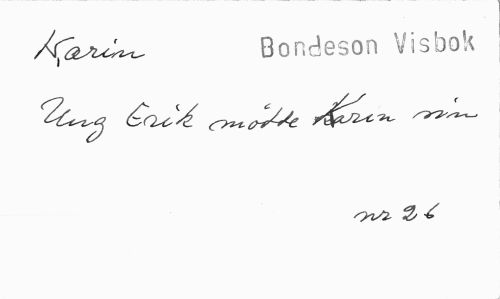 Karin Bondeson Visbok
Ung Erik mötte Karin sin
nr 26